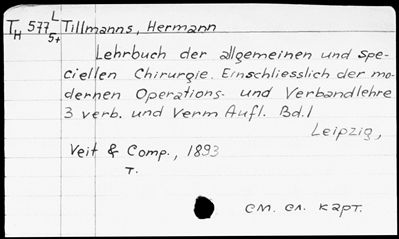 TH 577 L/5+ Tillmanns, Hermann
Lehrbuch der allgemeinen und spe-
ciellen Chirurgie. Einschliesslich der mo-
dernen Operations- und Verbandlehre
3 verb. und Verm Aufl. Bd.1
Leipzig,
Veit & Comp., 1893
T.
см. сл. карт.